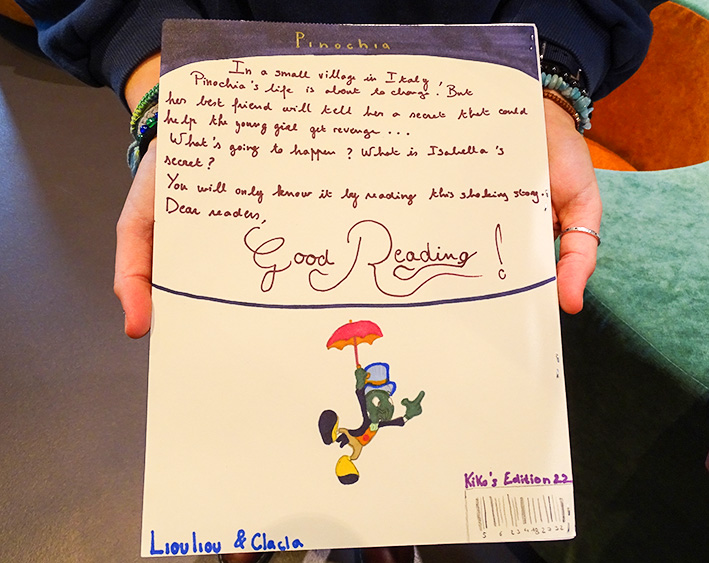 Pinochia
In a small village in Italy,
Pinochia's life is about to change. But
her best friend will tell her a secret that could
help the young girl get revenge ...
What's going to happen ? What is Isabella's
secret ?
You will only know it by reading this shoking story !
Dear readers,
Good Reading !
Kiko's Edition 22
Liouliou & Clacla